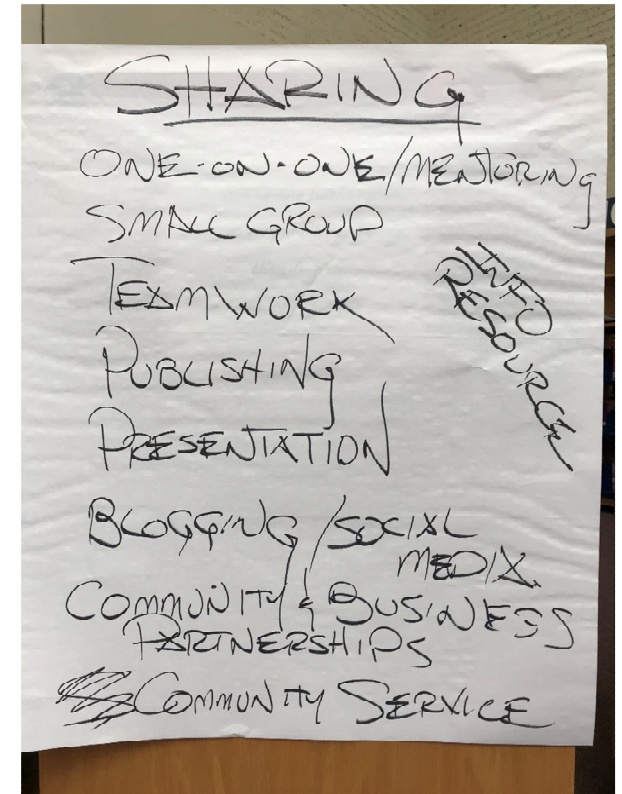 SHARING
ONE-ON-ONE/MENTORING
SMALL GROUP
TEAMWORK
PUBLISHING
PRESENTATION
INFO
RESOURCE
BLOGGING/SOCIAL
MEDIA
COMMUNITY & BUSINESS
PARTNERSHIPS
COMMUNITY SERVICE